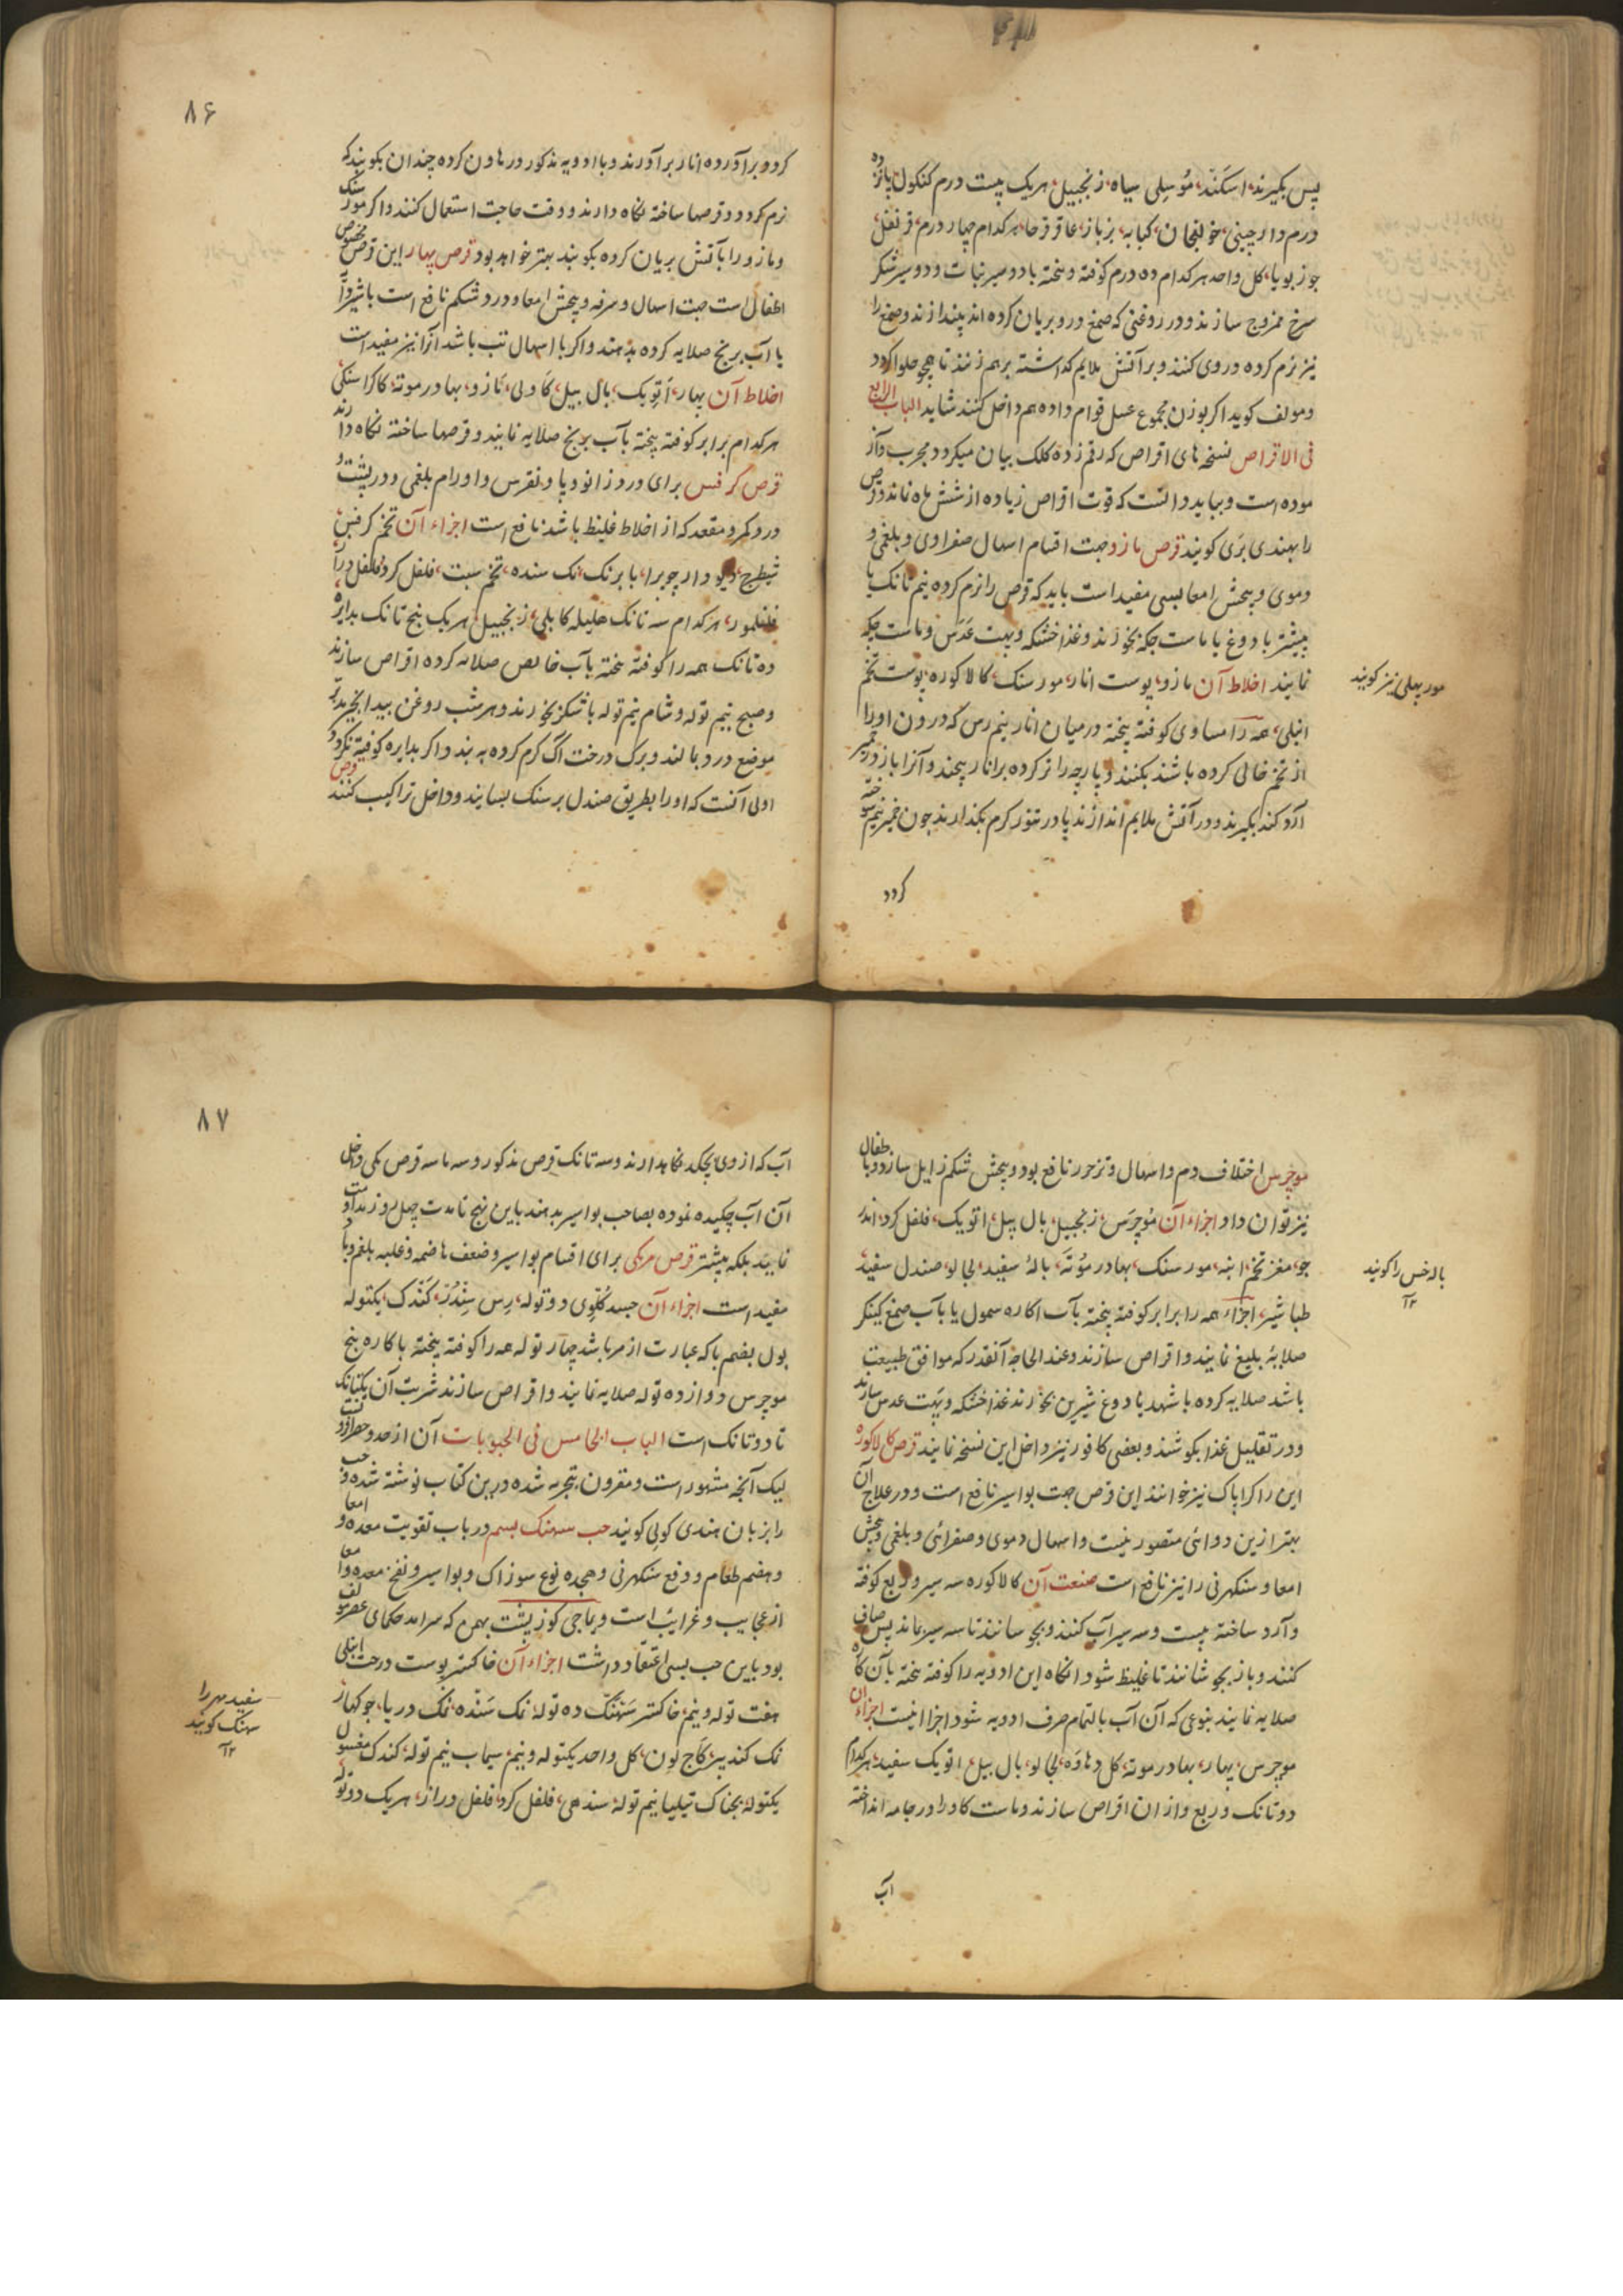 پس بگیرند اسکند، مُوسلی سیاه، زنجبیل، هریک بیست درم کنکول پانزده
درم دارچینی، خولنجان، کبابه، بزباز، عاقرقرحا، هرکدام چهار درم، قرنفل،
جوزبویا، کل واحد هرکدام ده درم کوفته و بیخته با دو سیر نبات و دو سیر شکر
سرخ ممزوج سازند و در روغنی که صمغ درو بریان کرده اند بیندازند و صمغ را
نیز نرم کرده در وی کنند و بر آتش ملایم کداشته برهم زنند تا همچو حلوا کردد
ومولف کوید اکر بوزن مجموع عسل قوام داده هم داخل کنند شاید الباب الرابع
فی الاقراص نسخه های اقراص که رقم زده کلک بیان میکردد مجرب و آز
موده است و بباید دانست که قوت اقراص زیاده از شش ماه نماند و قرص
را بهندی بَری کویند قرص مازو جهت اقسام اسهال صفراوی و بلغمی و
دموی و پیچش امعا بسی مفید است باید که قرص را نرم کرده نیم تانک یا
بیشتر با دوغ یا ماست چکه بخورند و غذا خشکه و بهت عدس و ماست چکه
نمایند اخلاط آن مازو، پوست انار، مورسنک، کالاکوره، پوست تخم
انبلی، همه را مساوی کوفته بیخته در میان انار نیم رس که درون او را
از تخم خالی کرده باشند بکنند و پارچه را تر کرده بر انار پیچند و آنرا باز در خمیر
آرد کند بگیرند و در آتش ملایم اندازند یا در تنور کرم بکذارند چون خمیر نیم سوخته
کردد
مور بهلی نیز کویند
۸۶
کردد برآورده انار برآورند و با ادویه مذکور در هاون کرده چندان بکوبند که
نرم کردد و قرصها ساخته نکاه دارند و وقت حاجت استعمال کنند و اکر مورسنک
و مازو را بآتش بریان کرده بکوبند بهتر خواهد بود قرص بهار این قرص مخصوص
اطفال است جهت اسهال و سرفه و پیچش امعا و درد شکم نافع است باشیر و آ
یا آب برنج صلایه کرده بدهند و اکر با اسهال تب باشد آنرا نیز مفید است
اخلاط آن بهار، اَتویک، بال بیل، کاولی، مازو، بهادرموته، کاکراسنکی
هرکدام برابر کوفته بیخته بآب برنج صلایه نمایند و قرصها ساخته نکاه دارند
قرص کرفس برای درد زانو و پا و نقرس و اورام بلغمی و درد پشت و
درد کمر و مقعد که از اخلاط غلیظ باشد نافع است اجزاء آن تخم کرفس
شیطرج، دیودار چوبرا، بابرنک، نمک سنده، تخم سبت، فلفل کرد، فلفل دراز
فلفلمور، هرکدام سه تانک هلیله کابلی، زنجبیل هریک پنج تانک بدایره
ده تانک همه را کوفته بیخته بآب خالص صلایه کرده اقراص سازند
و صبح نیم توله و شام نیم توله با شکر بخورند و هر شب روغن بیدانجیر بر
موضع درد بمالند و برک درخت اک کرم کرده به بندد و اکر بدایره کوفته نکردد
اولی آنست که او را بطریق صندل بر سنک بسایند و داخل تراکیب کنند قرص
موچرس اختلاف دم و اسهال و تزحر را نافع بود و پیچش شکم زایل سازد و باطفال
نیز توان داد اجزاء آن مُوچرس، زنجبیل، بال بیل، اتویک، فلفل کرد، اندر
جو، مغز تخم انبه، مورسنک، بهادر مُوتَه، بالهٔ سفید، لجالو، صندل سفید،
طباشیر، اجزاء همه را برابر کوفته بیخته بآب اکاره سمول یا بآب صمغ کینکر
صلایهٔ بلیغ نمایند و اقراص سازند و عند الحاجة آنقدر که موافق طبیعت
باشد صلایه کرده با شهد یا دوغ شیرین بخورند غذا خشکه و بَهت عدس سازند
و در تقلیل غذا بکوشند و بعضی کافور نیز داخل این نسخه نمایند قرص کالاکوره
این را کراپاک نیز خوانند این قرص جهت بواسیر نافع است و در علاج آن
بهتر ازین دوائی متصور نیست و اسهال دموی و صفرائی و بلغمی و پیچش
امعا و سنکهرنی را نیز نافع است صنعت آن کالاکوره سه سیر و ربع کوفته
و آرد ساخته بیست و سه سیر آب کنند و بجوشانند تا سه سیر بماند پس صاف
کنند و باز بجوشانند تا غلیظ شود آنکاه این ادویه را کوفته بیخته بآن کاره
صلایه نمایند بنوعی که آن آب بالتمام صرف ادویه شود اجزا اینست اجزاء آن
موچرس، بهار، بهادر موته، کل دهاوَه، لجالو، بال بیل، اتویک سفید، هرکدام
دو تانک و ربع و از ان اقراص سازند و ماست کاو را در جامه انداخته
آب
باله خس را کویند
۱۲
۸۷
آب که از وی بچکد نکاهدارند و سه تانک قرص مذکور و سه ماسه قرص مکی داخل
آن آب چکیده نموده بصاحب بواسیر بدهند باین نهج تا مدت چهل روز مداومت
نمایند بلکه بیشتر قرص مرکی برای اقسام بواسیر و ضعف هاضمه و غلبه بلغم و باد
مفید است اجزاء آن جسد کلوی دو توله، رس سِندُر، کَندک، یکتوله
بول بضم با که عبارت از مر باشد چهار توله همه را کوفته بیخته با کاره پنج
موچرس دوازده توله صلایه نمایند و اقراص سازند شربت آن یکتانک
تا دو تانک است الباب الخامس فی الحبوبات آن از حد و حصر افزونست
لیک آنچه مشهور است و مقرون بتجربه شده درین کتاب نوشته شده و حب
را بزبان هندی کولی کویند حب سهنک بسم در باب تقویت معده و امعا
و هضم طعام و دفع سنکهرنی و هجده نوع سوزاک و بواسیر و نفخ معده و امعا
از عجایب و غرایب است و بماجی کوزپشت بهمن که سرامد حکمای عصر مولف
بود باین حب بسی اعتقاد داشت اجزاء آن خاکستر پوست درخت انبلی
هفت توله و نیم، خاکستر سَنهنک ده توله، نمک سَنده، نمک دریا، جوکهار،
نمک کندیر، کاج لون، کل واحد یکتوله و نیم، سیماب نیم توله، کندک مغسول
یکتوله، بجناک تیلیا نیم توله، سندهی، فلفل کرد، فلفل دراز، هریک دو توله
سفید مهره را
سهنک کویند
۱۲